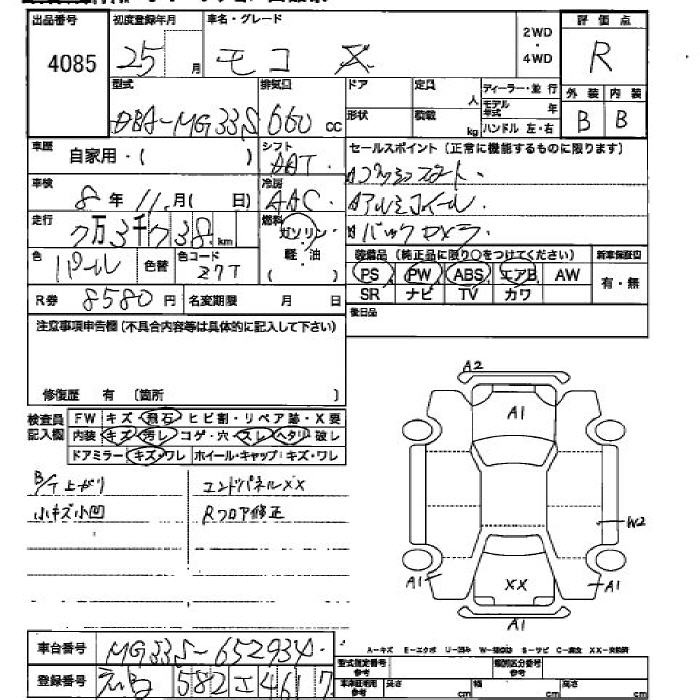 出品番号 初度登録年月 車名・グレード 2WD・4WD 評価点
4085 25 月 モコ X R
型式 排気量 ドア 定員 人 ディーラー・並行 外装 内装
DBA-MG33S 660 cc 形状 積載 kg モデル年式 年 ハンドル 左・右 B B
車歴 自家用・( ) シフト セールスポイント (正常に機能するものに限ります)
AT. プッシュスタート.
車検 8年 11.月( 日) 冷房 AAC. アルミホイール.
走行 7万3千738.km 燃料 ガソリン・軽・油 ( ) バックカメラ.
色 パール 色替 色コード Z7T 装備品 (純正品に限り○をつけてください) 新車保証書
PS PW ABS エアB AW 有・無
SR ナビ TV カワ
R券 8580 円 名変期限 月 日 後日品
注意事項申告欄 (不具合内容等は具体的に記入して下さい)
修復歴 有 〔箇所 〕
検査員記入欄 FW キズ・飛石・ヒビ割・リペア跡・X要
内装 キズ・汚レ・コゲ・穴・スレ・ヘタリ・破レ
ドアミラー キズ・ワレ ホイール・キャップ:キズ・ワレ
B/T上がり エンドパネルXX
小キズ小凹 Rフロア修正
A2
A1
W2
XX
A1 A1
A1
車台番号 MG33S-652934.
A-キズ E-エクボ U-凹み W-補修跡 S-サビ C-腐食 XX-交換済
登録番号 582 エ 4617
型式指定番号 参考 類別区分番号 参考
車庫証明用 参考 長さ cm 幅 cm 高さ cm